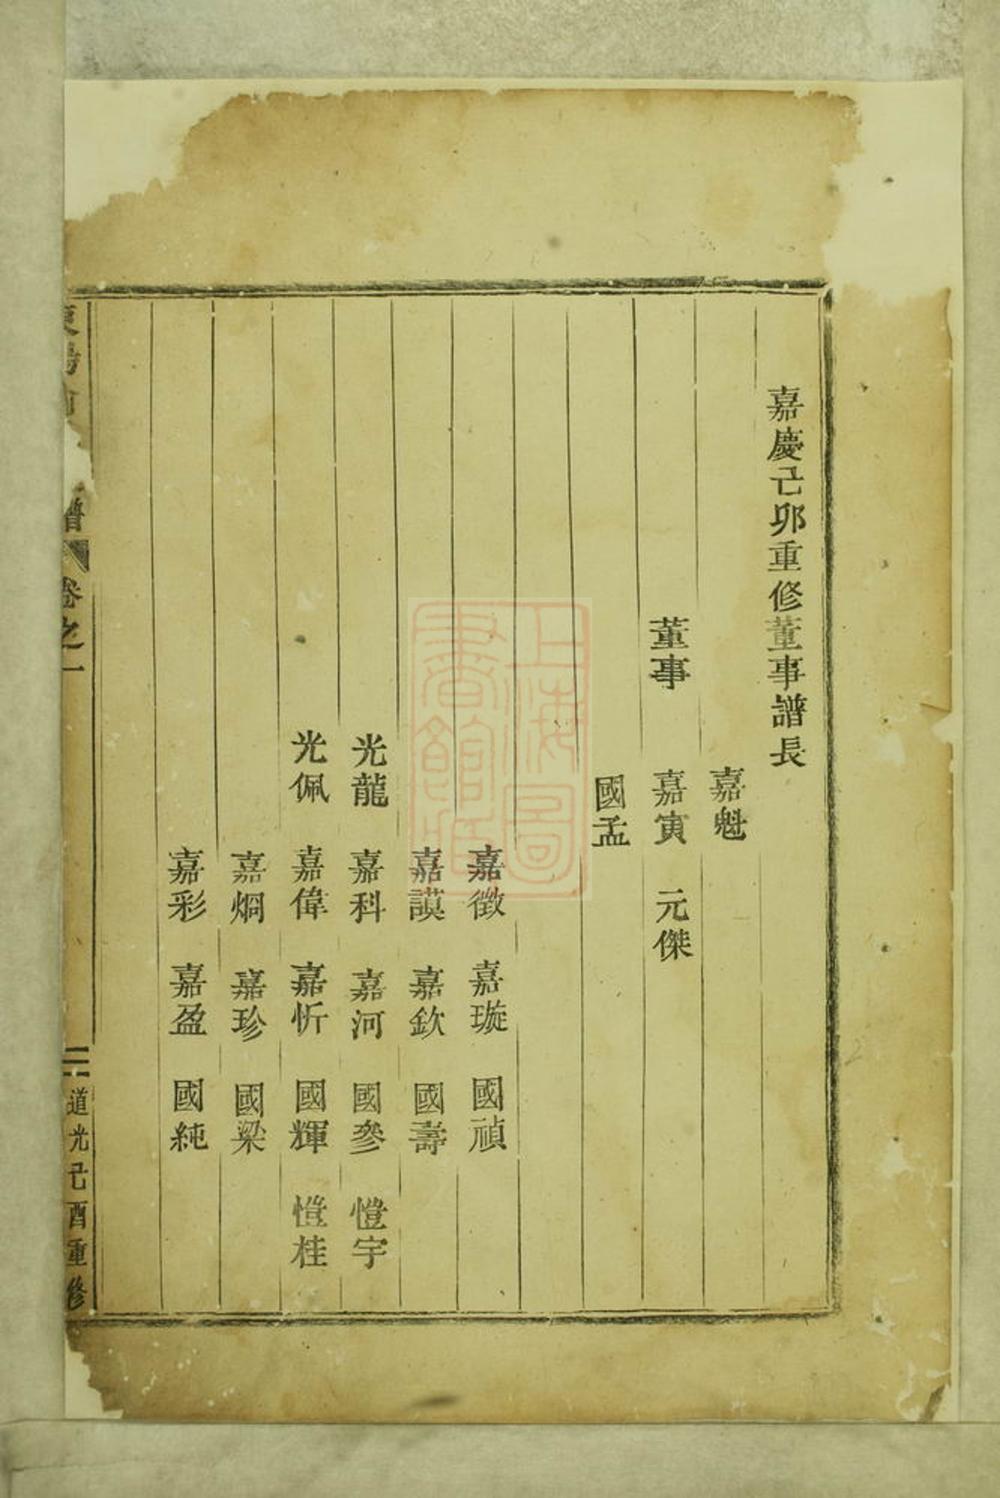 嘉慶己卯重修董事譜長
嘉魁
董事 嘉寅 元傑
國孟
嘉徵 嘉璇 國禎
嘉謨 嘉欽 國壽
光龍 嘉科 嘉河 國參 愷宇
光佩 嘉偉 嘉忻 國輝 愷桂
嘉炯 嘉珍 國梁
嘉彩 嘉盈 國純
譜 卷之一 道光己酉重修
上海圖書館藏